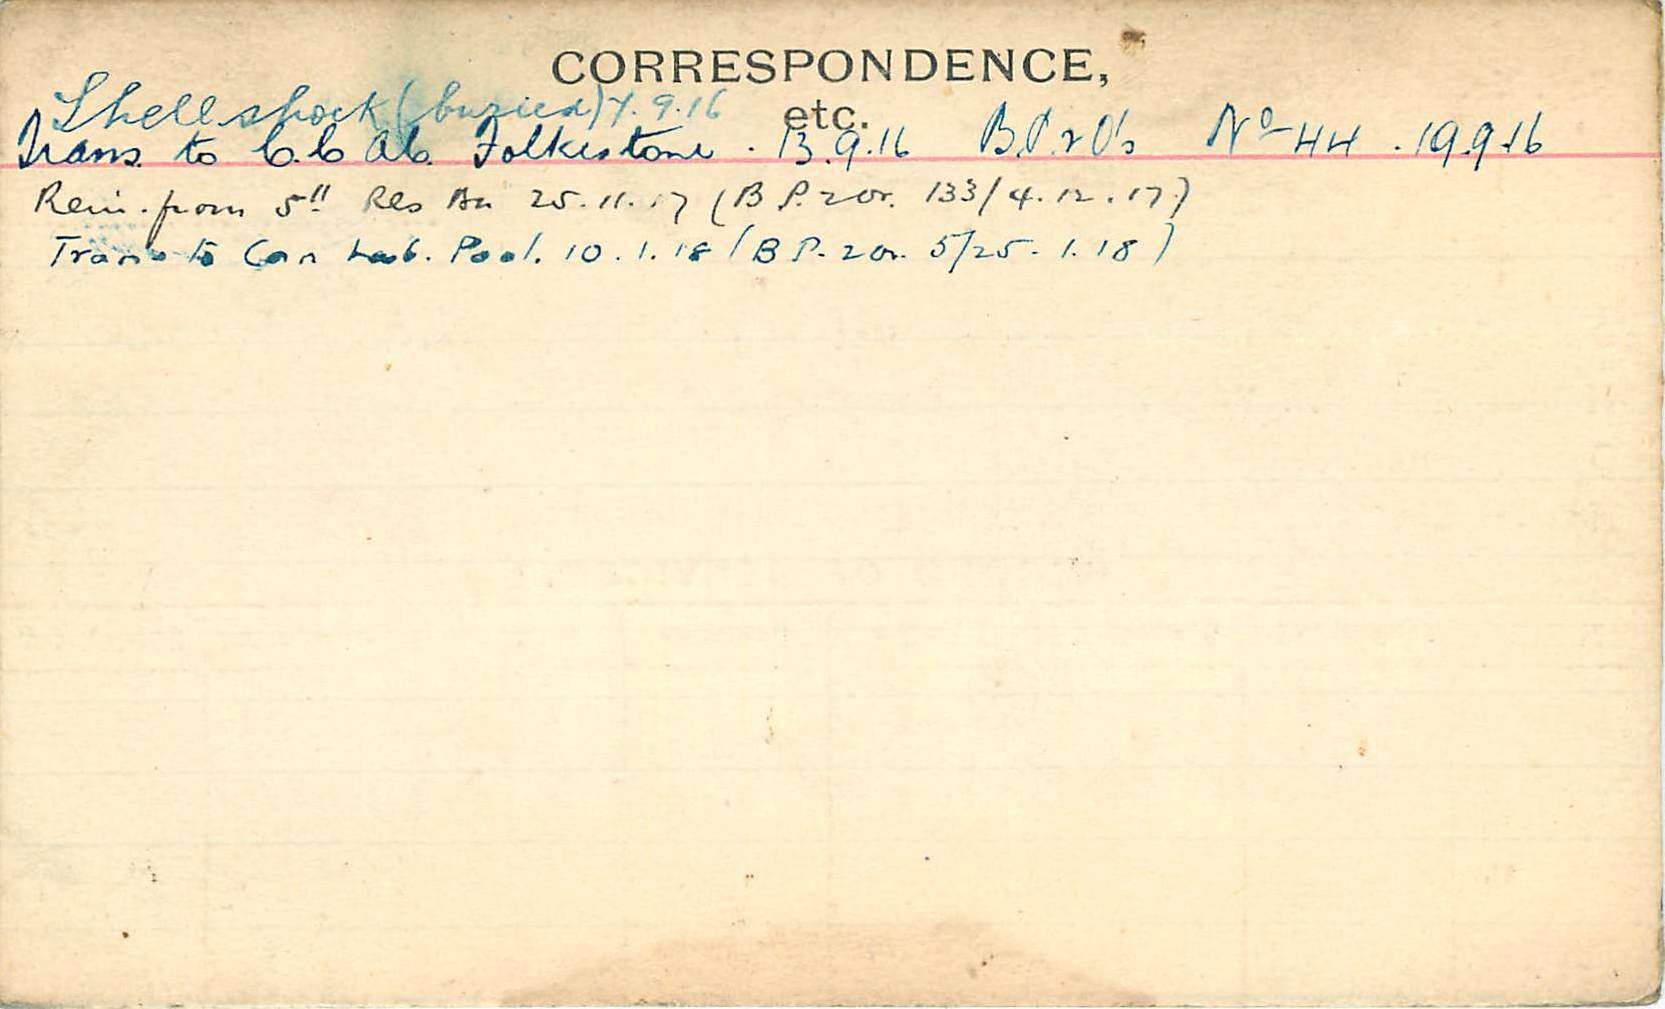 CORRESPONDENCE,
etc.
Shell shock (buried) 7.9.16
Trans. to C.C.A.C. Folkestone. 13.9.16 B.P.2 O's No 44. 19.9.16
Rein. from 5" Res Bn 25.11.17 (B P. 2 or. 133/4.12.17)
Trans to Can Lab. Pool. 10.1.18 (B P. 2 or. 5/25.1.18)